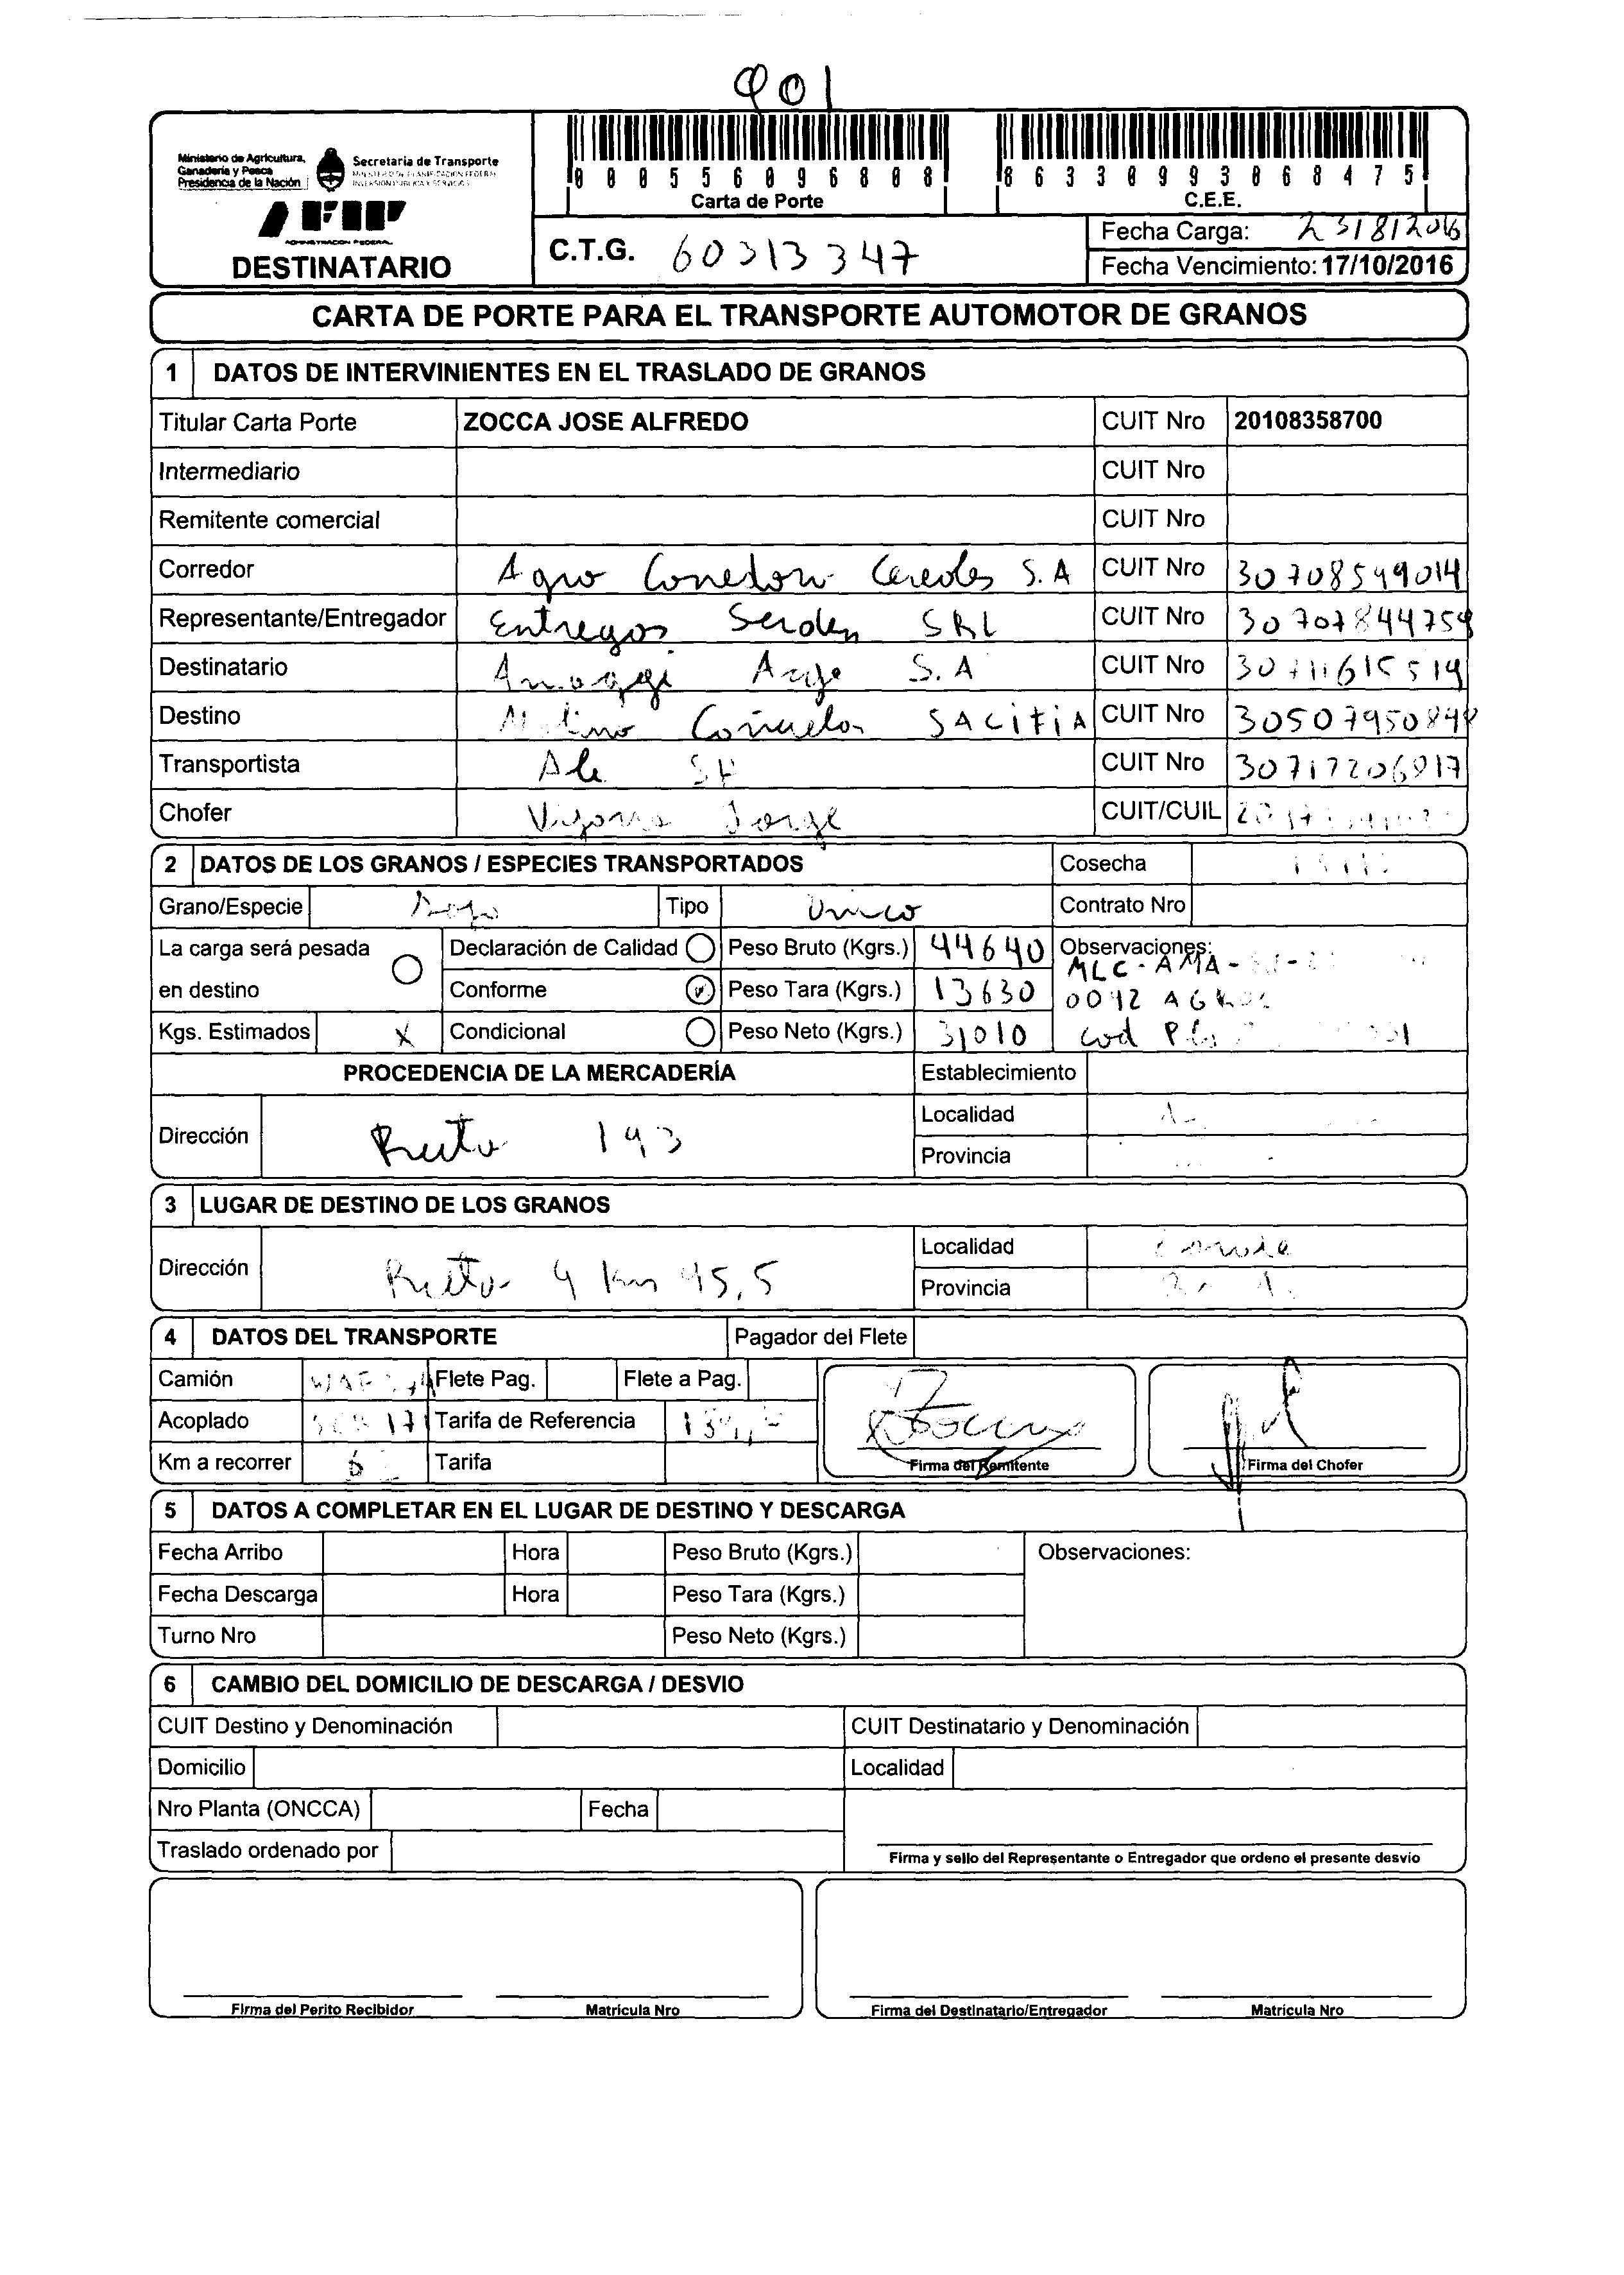 901
Ministerio de Agricultura,
Ganadería y Pesca
Presidencia de la Nación
Secretaria de Transporte
AFIP
ADMINISTRACION FEDERAL
DESTINATARIO
000556096808
Carta de Porte
86330993068475
C.E.E.
C.T.G. 60313347
Fecha Carga: 23/8/2016
Fecha Vencimiento: 17/10/2016
CARTA DE PORTE PARA EL TRANSPORTE AUTOMOTOR DE GRANOS
1 DATOS DE INTERVINIENTES EN EL TRASLADO DE GRANOS
Titular Carta Porte ZOCCA JOSE ALFREDO CUIT Nro 20108358700
Intermediario CUIT Nro
Remitente comercial CUIT Nro
Corredor Agro Corredora Cereales S.A CUIT Nro 30708599014
Representante/Entregador Entregas SRL CUIT Nro 30707844759
Destinatario S.A CUIT Nro 30711615519
Destino Molino Cañuelas SACIFIA CUIT Nro 30507950848
Transportista Ale CUIT Nro
Chofer Jorge CUIT/CUIL
2 DATOS DE LOS GRANOS / ESPECIES TRANSPORTADOS Cosecha
Grano/Especie Tipo Unico Contrato Nro
La carga será pesada
en destino
Declaración de Calidad Peso Bruto (Kgrs.) 44640 Observaciones:
MLC-AMA-
Conforme Peso Tara (Kgrs.) 13630
Kgs. Estimados X Condicional Peso Neto (Kgrs.) 31010 Cod
PROCEDENCIA DE LA MERCADERÍA Establecimiento
Dirección Ruta 193 Localidad
Provincia
3 LUGAR DE DESTINO DE LOS GRANOS
Dirección Ruta 9 km 45,5 Localidad
Provincia
4 DATOS DEL TRANSPORTE Pagador del Flete
Camión Flete Pag. Flete a Pag.
Acoplado Tarifa de Referencia
Km a recorrer Tarifa
Firma del Remitente Firma del Chofer
5 DATOS A COMPLETAR EN EL LUGAR DE DESTINO Y DESCARGA
Fecha Arribo Hora Peso Bruto (Kgrs.) Observaciones:
Fecha Descarga Hora Peso Tara (Kgrs.)
Turno Nro Peso Neto (Kgrs.)
6 CAMBIO DEL DOMICILIO DE DESCARGA / DESVIO
CUIT Destino y Denominación CUIT Destinatario y Denominación
Domicilio Localidad
Nro Planta (ONCCA) Fecha
Traslado ordenado por
Firma y sello del Representante o Entregador que ordeno el presente desvio
Firma del Perito Recibidor Matricula Nro Firma del Destinatario/Entregador Matricula Nro